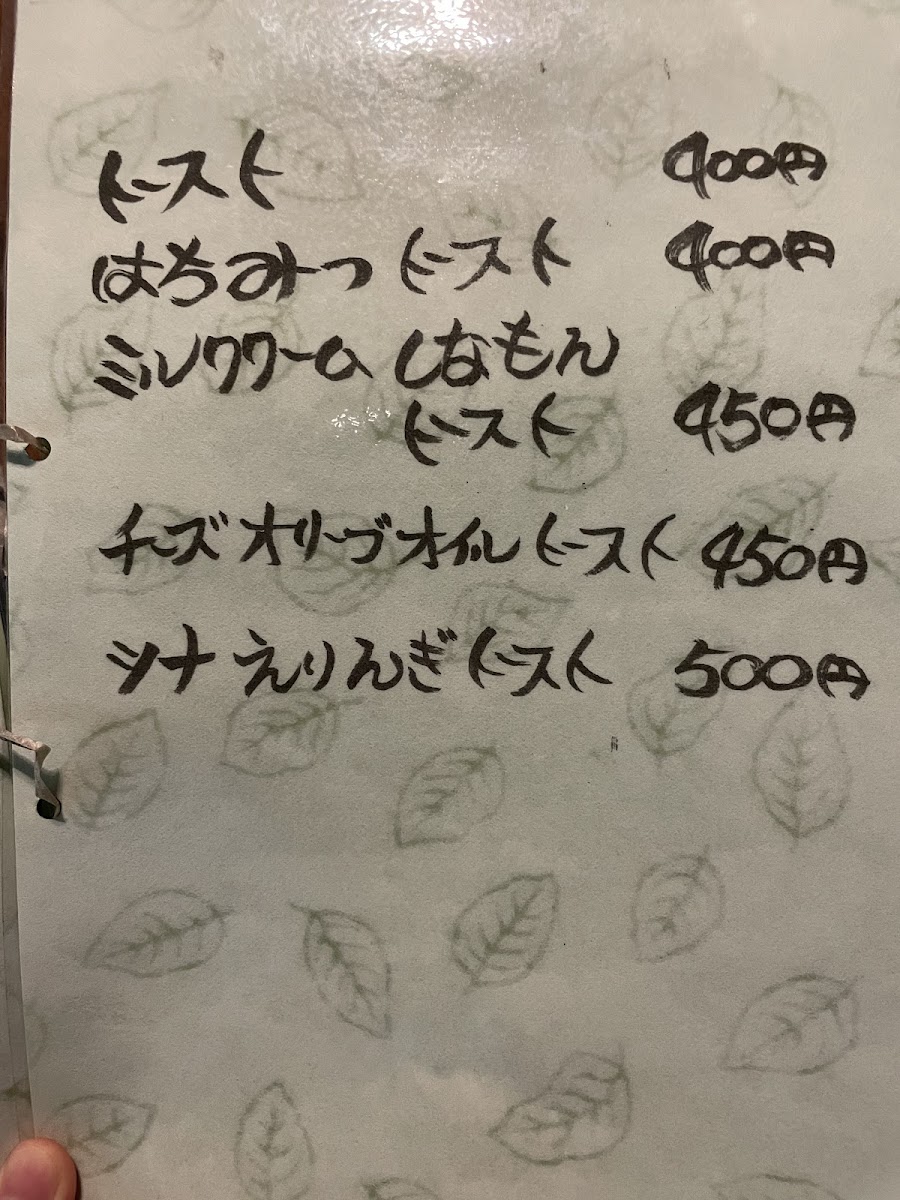 トースト 400円
はちみつ トースト 400円
ミルククーム しなもん
トースト 450円
チーズ オリーブオイル トースト 450円
ツナ えりんぎ トースト 500円